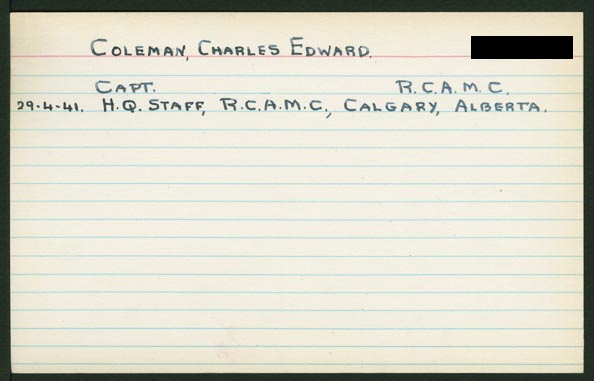 COLEMAN, CHARLES EDWARD.
CAPT. R.C.A.M.C.
29-4-41. H.Q. STAFF, R.C.A.M.C., CALGARY, ALBERTA.